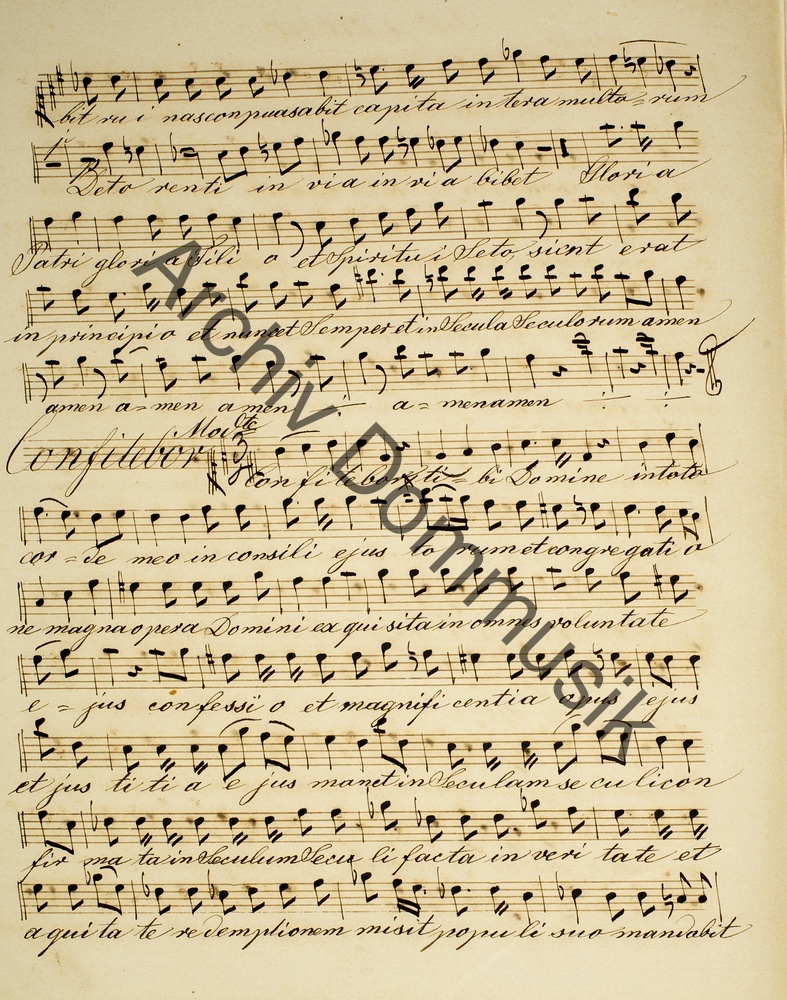 bit ru i nasconpuasabit capita in tera multo = rum
Deto renti in via in vi a bibet Glori a
Patri glori a Fili o et Spiritu i Scto, sicut erat
in principi o et nuncet Semper et in Secula Seculo rum amen
amen a = men amen ÷ a = men amen ÷ ÷
Confitebor Modto 3
Con fi te bor ti = bi Domine in toto
cor = de meo in consili ejus to rum et congre gati o
ne magna opera Domini ex qui sita in omnes voluntate
e = jus confessi o et magnifi centia opus ejus
et jus ti ti a e jus manet in Seculam se cu li con
fir ma ta in Seculum Secu li facta in veri tate et
a qui ta te redemptionem misit popu li suo mandabit
Archiv Dommusik